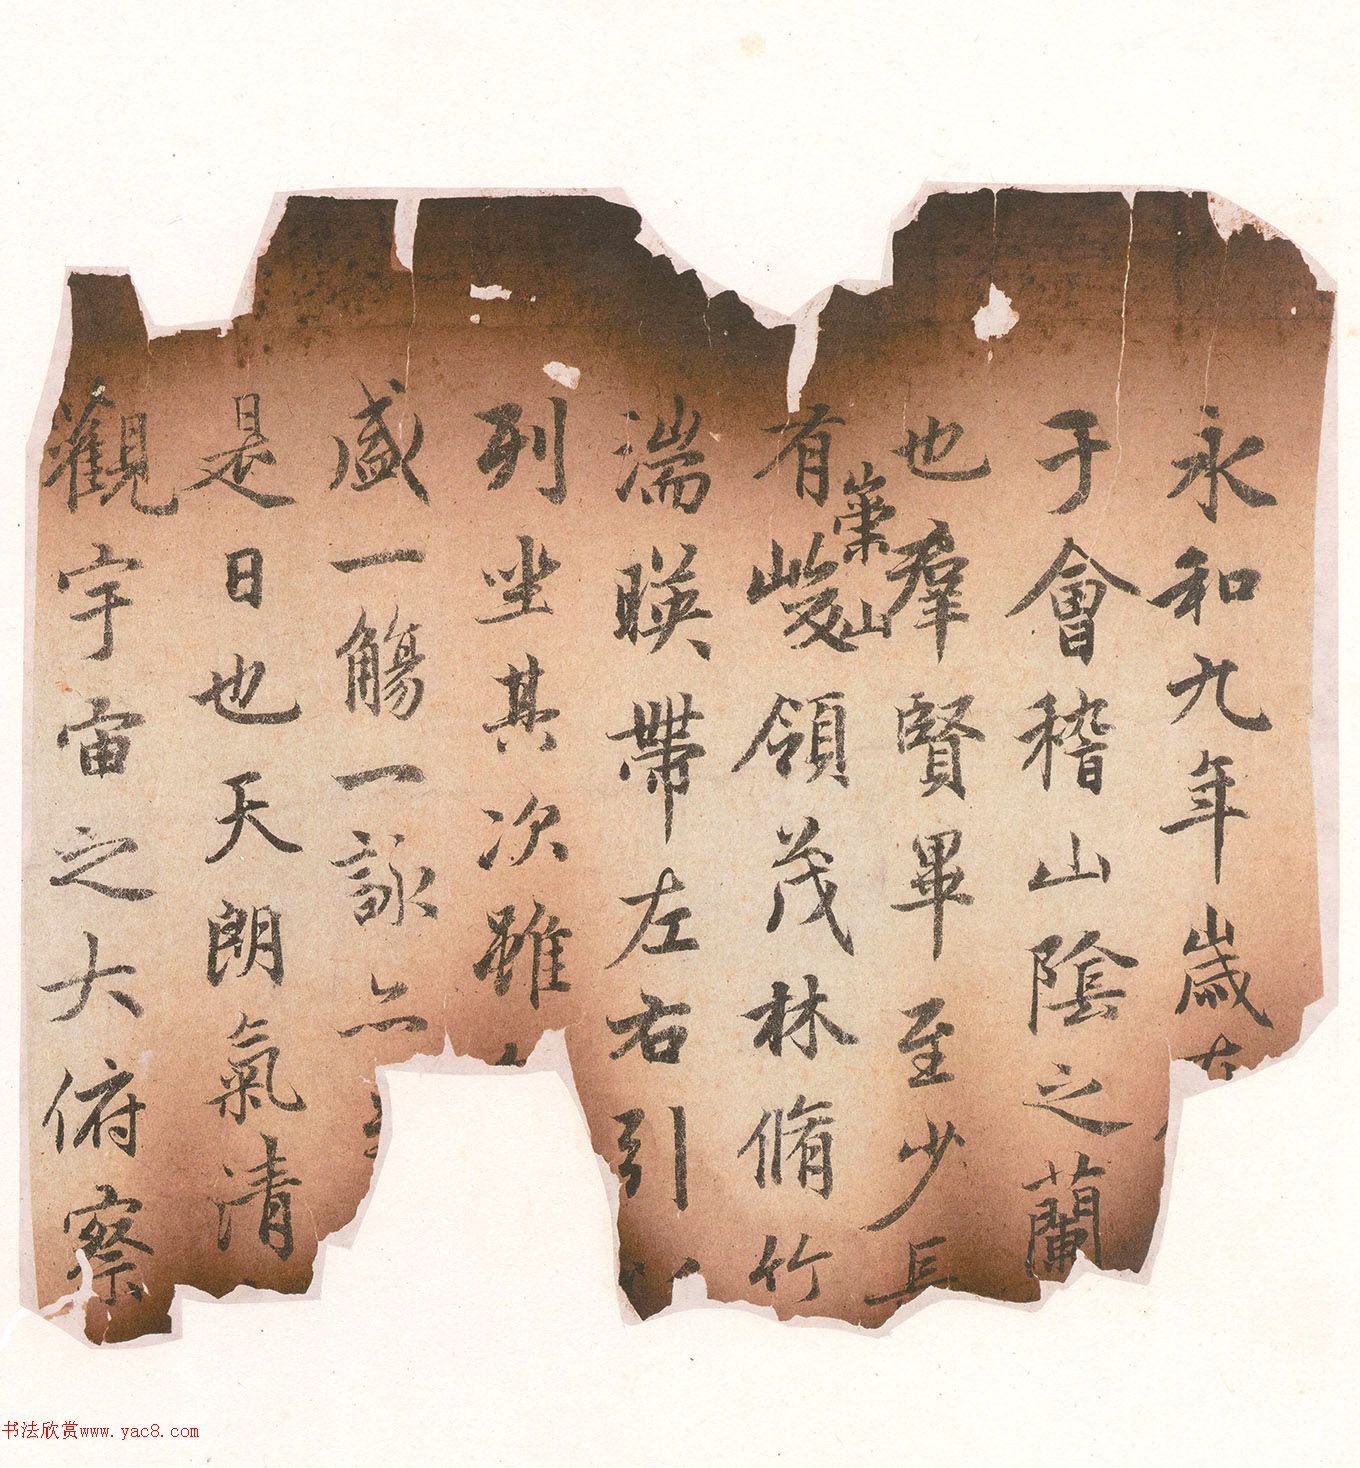 永和九年歲在
于會稽山陰之蘭
也羣賢畢至少長
有崇山峻領茂林脩竹
湍暎帶左右引以
列坐其次雖
盛一觴一詠亦
是日也天朗氣清
觀宇宙之大俯察
书法欣赏www.yac8.com